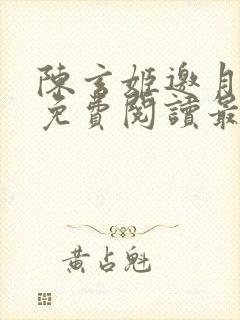 陳玄姬邀月
免費閱讀最
黃占魁